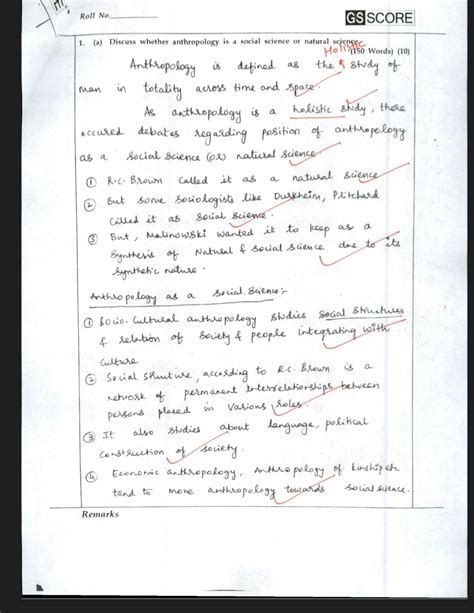 Roll No.
GS SCORE
1. (a) Discuss whether anthropology is a social science or natural science.
Holistic (150 Words) (10)
Anthropology is defined as the study of
man in totality across time and space.
As anthropology is a holistic study, there
occured debates regarding position of anthropology
as a social science (or) natural science.
① R.C. Brown called it as a natural science
② But some sociologists like Durkheim, Pritchard
called it as social science.
③ But, Malinowski wanted it to keep as a
synthesis of Natural & social science due to its
synthetic nature.
Anthropology as a social science:-
① Socio-cultural anthropology studies social structures
& relation of society & people integrating with
culture
② Social structure, according to R.C. Brown is a
network of permanent interrelationships between
persons placed in various roles.
③ It also studies about language, political
construction of society.
④ Economic anthropology, Anthropology of kinship etc
tend to more anthropology towards social science.
Remarks